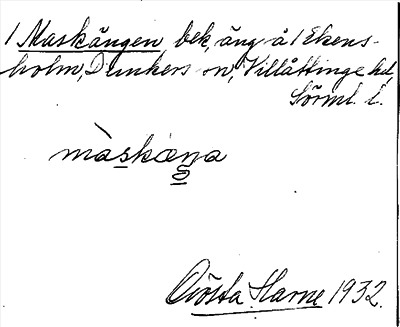 1 Maskängen, bek, äng å 1 Ekens-
holm, Dunkers sn, Villåttinge hd,
Sörml. l.
màskæŋa
Gösta Harne 1932.